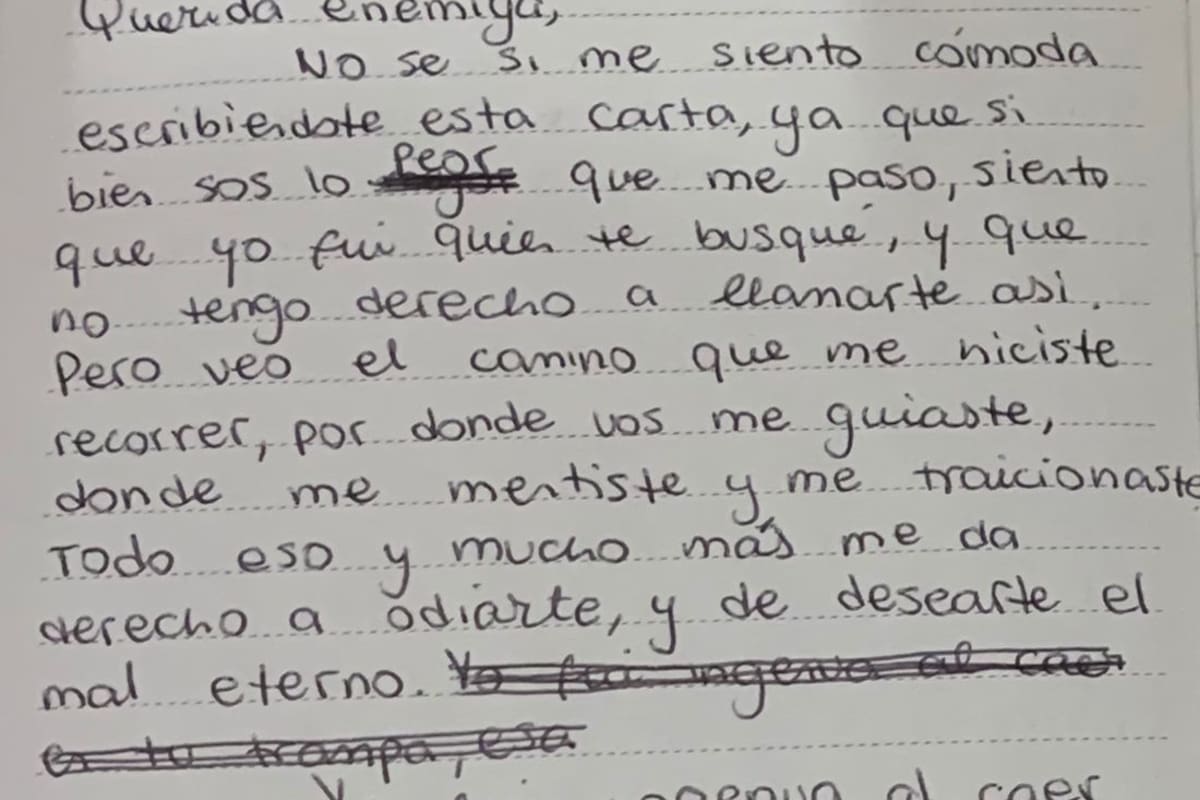 Querida enemiga,
No se si me siento cómoda
escribiendote esta carta, ya que si
bien sos lo peor que me paso, siento
que yo fui quien te busqué, y que
no tengo derecho a llamarte asi.
Pero veo el camino que me hiciste
recorrer, por donde vos me guiaste,
donde me mentiste y me traicionaste
Todo eso y mucho más me da
derecho a odiarte, y de desearte el
mal eterno. Yo fui ingenua al caer
en tu trampa, esa
al caer